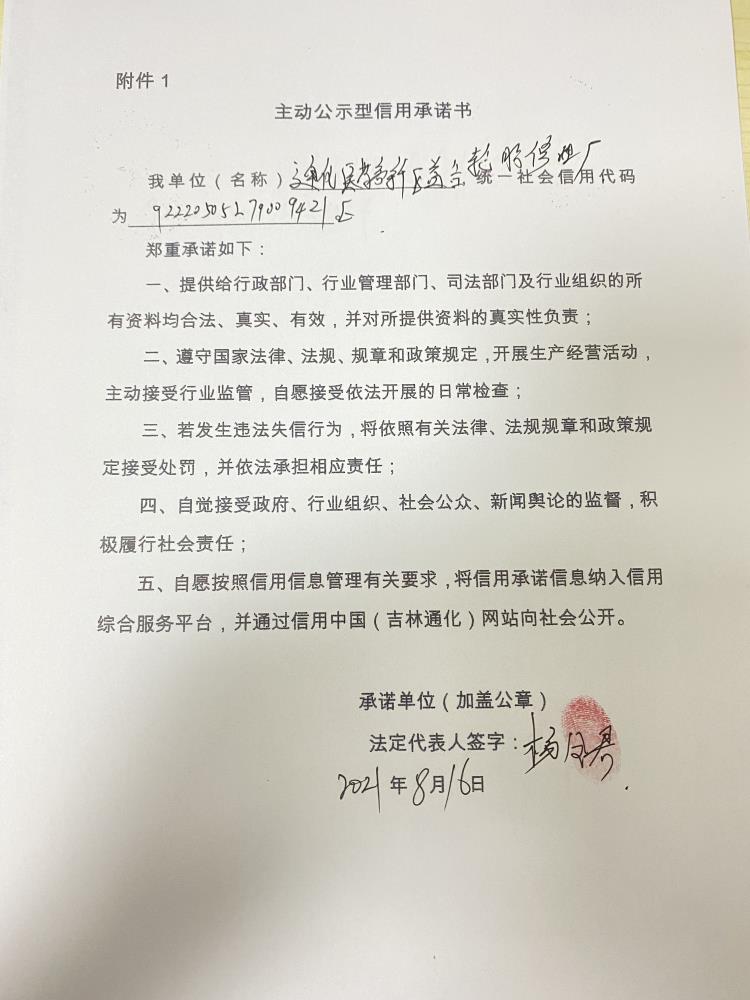 附件1
主动公示型信用承诺书
我单位（名称）通化医药高新区 轮胎 厂 统一社会信用代码
为 92220505L79009421
郑重承诺如下：
一、提供给行政部门、行业管理部门、司法部门及行业组织的所
有资料均合法、真实、有效，并对所提供资料的真实性负责；
二、遵守国家法律、法规、规章和政策规定，开展生产经营活动，
主动接受行业监管，自愿接受依法开展的日常检查；
三、若发生违法失信行为，将依照有关法律、法规规章和政策规
定接受处罚，并依法承担相应责任；
四、自觉接受政府、行业组织、社会公众、新闻舆论的监督，积
极履行社会责任；
五、自愿按照信用信息管理有关要求，将信用承诺信息纳入信用
综合服务平台，并通过信用中国（吉林通化）网站向社会公开。
承诺单位（加盖公章）
法定代表人签字：杨
2021年8月16日